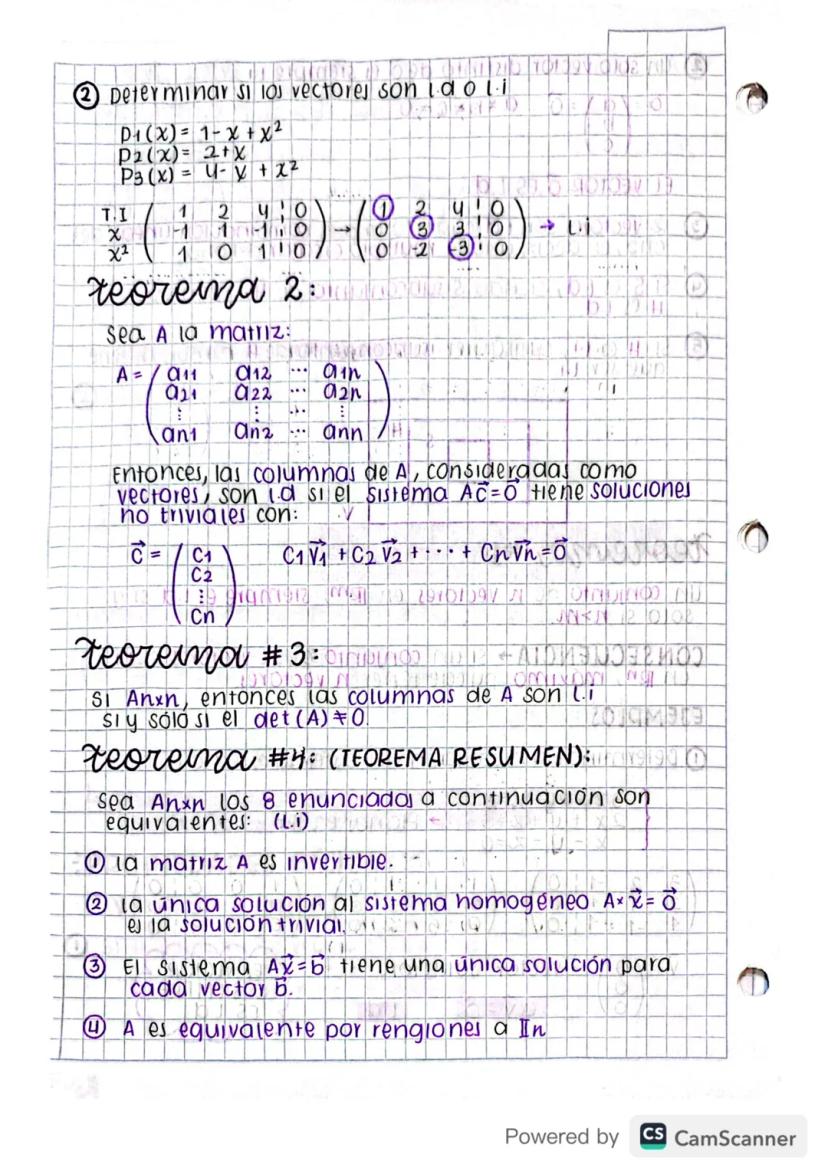 ② Determinar si los vectores son l.d o l.i
P1(x) = 1-x+x²
P2(x) = 2+x
P3(x) = 4-x+x²
T.I ( 1 2 4 ¦ 0 ) → ( 1 2 4 ¦ 0 ) → L.i
x ( -1 1 -1 ¦ 0 ) ( 0 3 3 ¦ 0 )
x² ( 1 0 1 ¦ 0 ) ( 0 -2 -3 ¦ 0 )
teorema 2:
Sea A la matriz:
A = ( a11 a12 ... a1n )
a21 a22 ... a2n
⋮ ⋮ ⋱ ⋮
an1 an2 ... ann
Entonces, las columnas de A, consideradas como
vectores, son l.d si el sistema Ac⃗=0⃗ tiene soluciones
no triviales con:
c⃗ = ( C1 ) C1V1⃗ + C2V2⃗ + ... + CnVn⃗ = 0⃗
C2
⋮
Cn
teorema #3:
Si Anxn, entonces las columnas de A son l.i
si y sólo si el det(A) ≠ 0.
teorema #4: (TEOREMA RESUMEN):
Sea Anxn los 8 enunciados a continuación son
equivalentes: (l.i)
① la matriz A es invertible.
② la única solución al sistema homogéneo A×x⃗=0⃗
es la solución trivial.
③ El sistema Ax⃗=b⃗ tiene una única solución para
cada vector b⃗.
④ A es equivalente por renglones a In
Powered by CS CamScanner